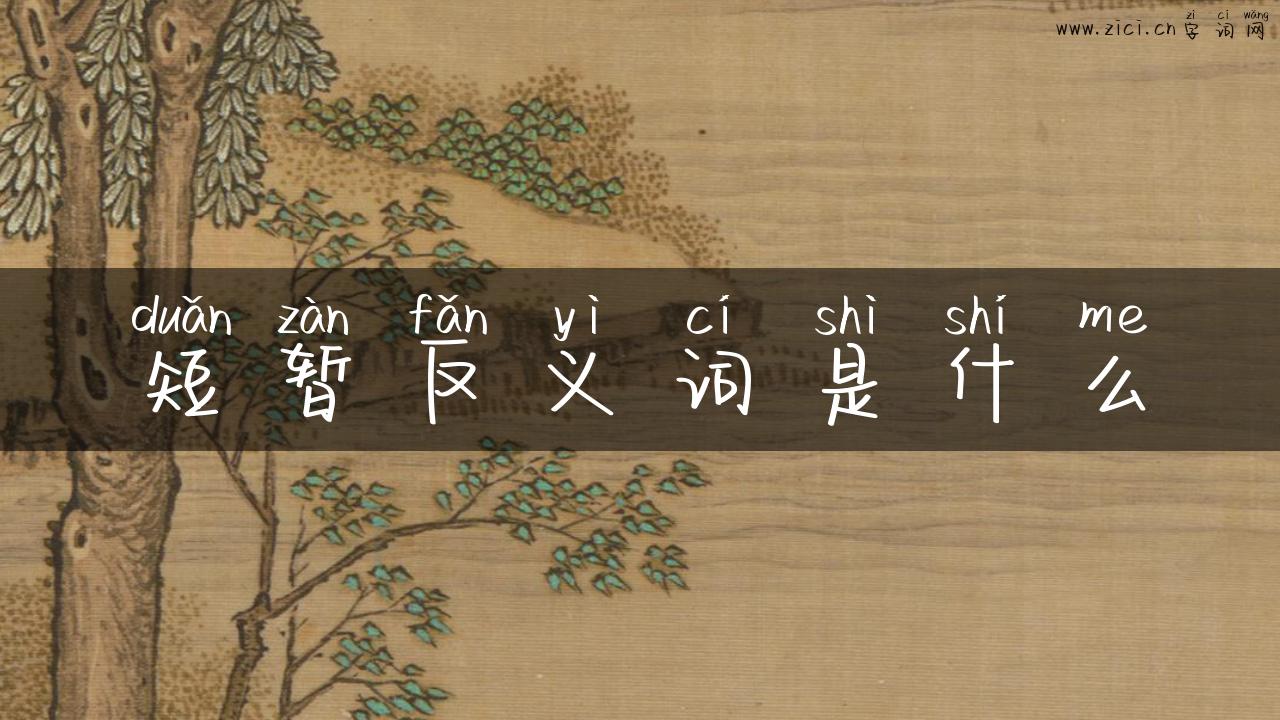 zì cí wǎng
www.zici.cn字词网
duǎn zàn fǎn yì cí shì shí me
短暂反义词是什么